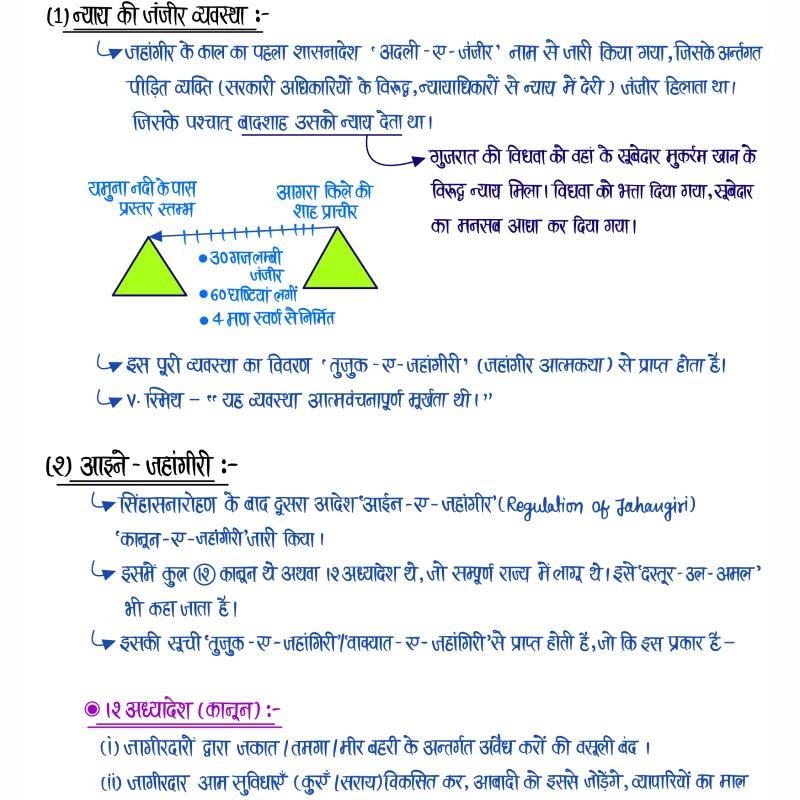 (1) न्याय की जंजीर व्यवस्था :-
जहांगीर के काल का पहला शासनादेश 'अदली-ए-जंजीर' नाम से जारी किया गया, जिसके अर्न्तगत
पीड़ित व्यक्ति (सरकारी अधिकारियों के विरुद्ध, न्यायाधिकारों से न्याय में देरी) जंजीर हिलाता था।
जिसके पश्चात् बादशाह उसको न्याय देता था।
गुजरात की विधवा को वहां के सूबेदार मुकर्रम खान के
विरुद्ध न्याय मिला। विधवा को भत्ता दिया गया, सूबेदार
का मनसब आधा कर दिया गया।
यमुना नदी के पास
प्रस्तर स्तम्भ
आगरा किले की
शाह प्राचीर
• 30 गज लम्बी
जंजीर
• 60 घण्टियां लगीं
• 4 मण स्वर्ण से निर्मित
इस पूरी व्यवस्था का विवरण 'तुजुक-ए-जहांगीरी' (जहांगीर आत्मकथा) से प्राप्त होता है।
V. स्मिथ – "यह व्यवस्था आत्मवंचनापूर्ण मूर्खता थी।"
(२) आइने-जहांगीरी :-
सिंहासनारोहण के बाद दूसरा आदेश 'आईन-ए-जहांगीर' (Regulation of Jahangiri)
'कानून-ए-जहांगीरी' जारी किया।
इसमें कुल १२ कानून थे अथवा १२ अध्यादेश थे, जो सम्पूर्ण राज्य में लागू थे। इसे 'दस्तूर-उल-अमल'
भी कहा जाता है।
इसकी सूची 'तुजुक-ए-जहांगिरी'/'वाक्यात-ए-जहांगिरी' से प्राप्त होती है, जो कि इस प्रकार है –
१२ अध्यादेश (कानून) :-
(i) जागीरदारों द्वारा जकात/तमगा/मीर बहरी के अन्तर्गत अवैध करों की वसूली बंद।
(ii) जागीरदार आम सुविधाएँ (कुएँ/सराय) विकसित कर, आबादी को इससे जोड़ेंगे, व्यापारियों का माल